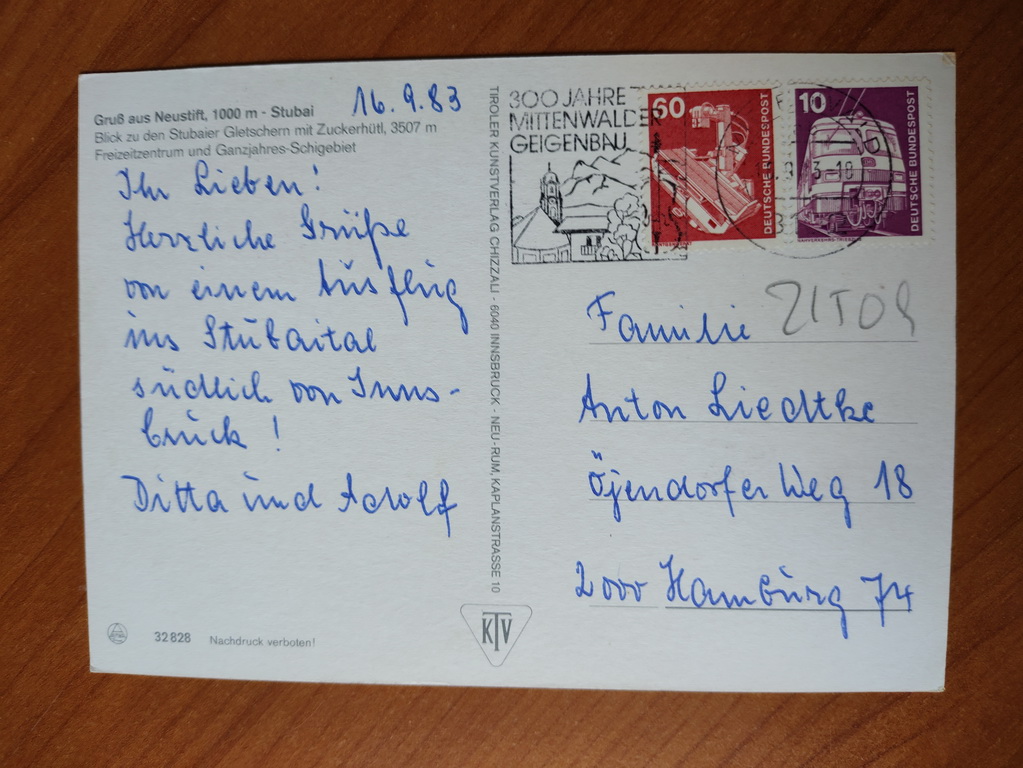 Gruß aus Neustift, 1000 m - Stubai
Blick zu den Stubaier Gletschern mit Zuckerhütl, 3507 m
Freizeitzentrum und Ganzjahres-Schigebiet
16.9.83
Ihr Lieben!
Herzliche Grüße
von einem Ausflug
ins Stubaital
südlich von Inns-
bruck!
Ditta und Adolf
32828 Nachdruck verboten!
TIROLER KUNSTVERLAG CHIZZALI - 6040 INNSBRUCK - NEU-RUM, KAPLANSTRASSE 10
KTV
300 JAHRE
MITTENWALDER
GEIGENBAU
60
DEUTSCHE BUNDESPOST
10
DEUTSCHE BUNDESPOST
Familie
Anton Liedtke
Öjendorfer Weg 18
2000 Hamburg 74